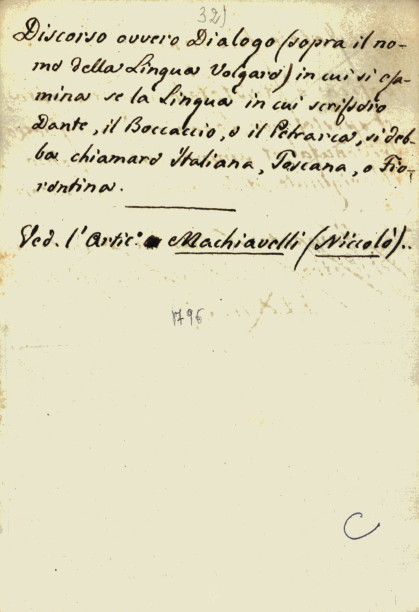 32)
Discorso ovvero Dialogo (sopra il no-
me della Lingua Volgare) in cui si esa-
mina se la Lingua in cui scrissero
Dante, il Boccaccio, e il Petrarca, si deb-
ba chiamare Italiana, Toscana, o Fio-
rentina.
Ved. l'Artic.º Machiavelli (Niccolò)..
1796
C